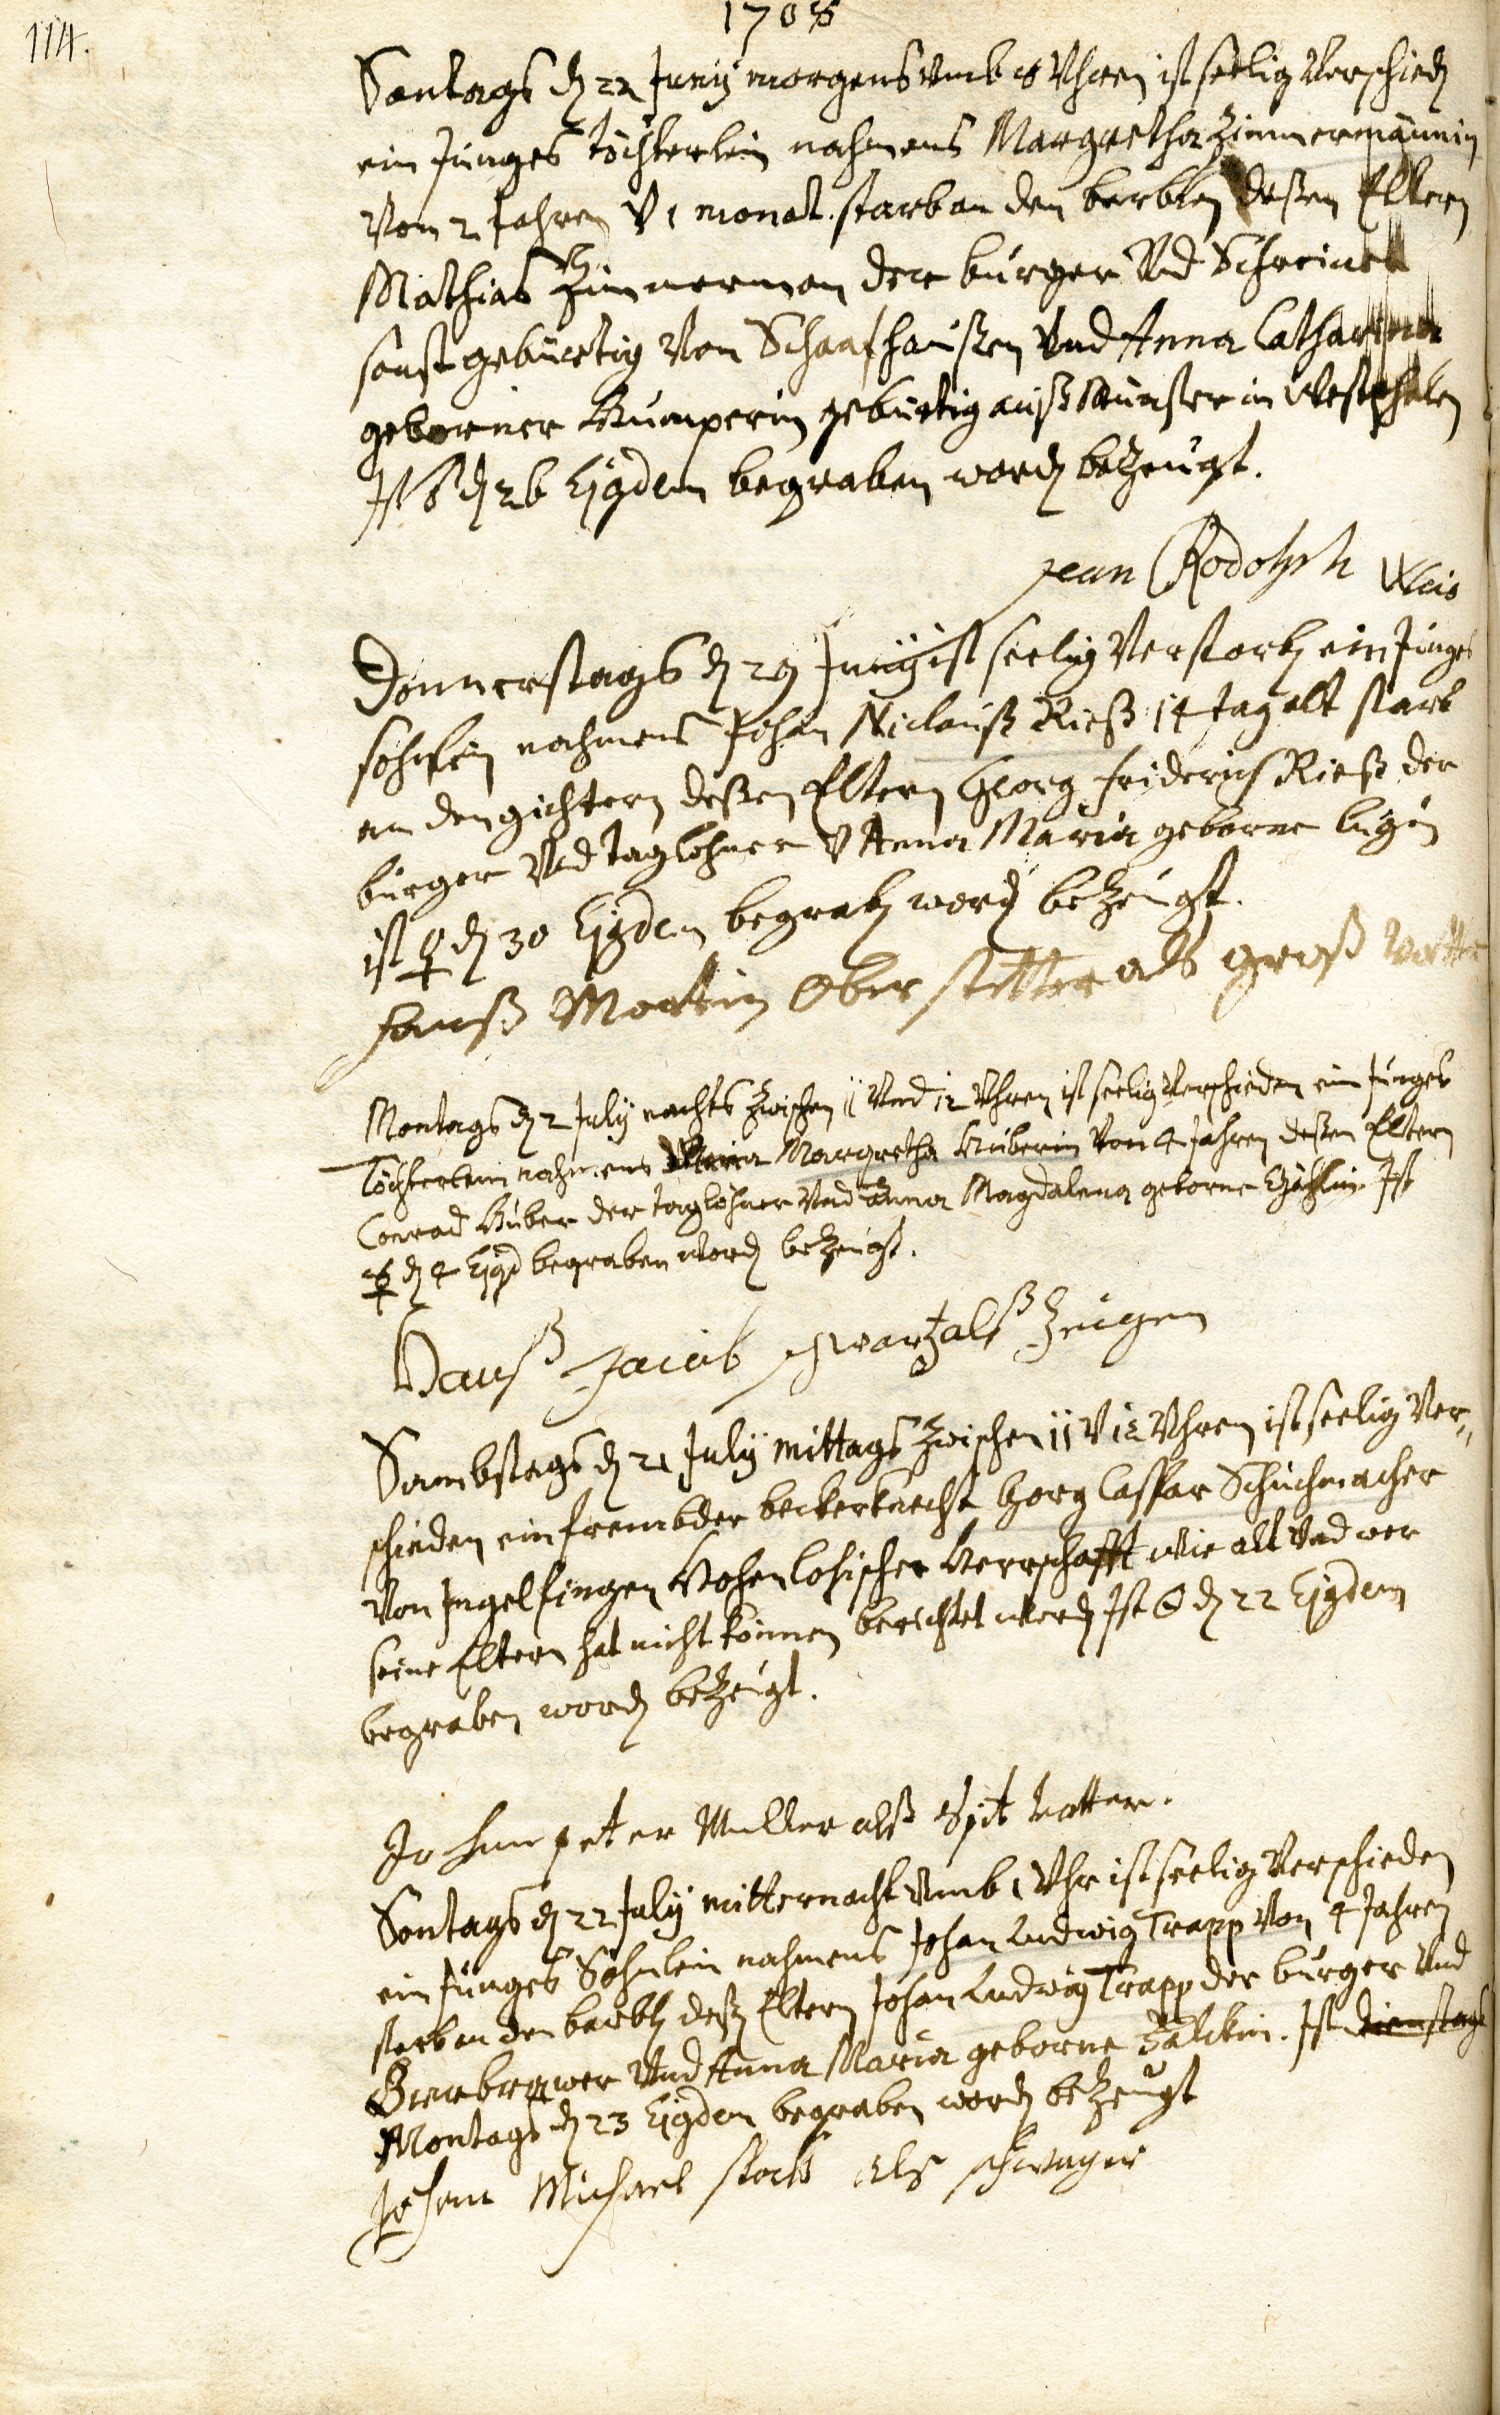 114.
1708
Sontags dh 24 Juny morgens umb 8 Uhren ist seelig verschieden
ein junges töchterlein nahmens Margretha Zimmermännin
von 2 Jahren v 1 monat. starb an den barblen deßen Eltern
Mathias Zimmerman der burger und Schreiner
sonst gebürtig von Schaafhaußen und Anna Catharina
geborner Kumperin gebürtig auß Münster in Westphalen
Ist dh 26 Ejsdem begraben worden bezeugt.
Jean Rodolph Weis
Donnerstags dh 29 Juny ist seelig verstorben ein junges
söhnlein nahmens Johan Niclauß Rieß 14 tag alt starb
an den gichtern deßen Eltern Georg friderich Rieß der
burger und taglöhner v Anna Maria geborne
ist ♀ dh 30 Ejsdem begraben worden bezeugt.
Hanß Martin Oberstetter als groß vatter
Montags dh 2 July nachts zwischen 11 und 12 Uhren ist seelig verschieden ein junges
Töchterlein nahmens Maria Margretha Huberin von 4 Jahren deßen Eltern
Conrad Huber der taglöhner und Anna Magdalena geborne Ist
☿ dh 4 Ejsd begraben worden bezeugt.
Hanß Jacob schwartz alß Zeugen
Sambstags dh 21 July mittags zwischen 11 v 12 Uhren ist seelig ver=
schieden ein frembder beckerknecht Georg Caspar Schuchmacher
von Ingelfingen Hohenlohischer Herrschafft wie alt und wer
seine Eltern hat nicht können berichtet werden Ist ☉ dh 22 Ejsdem
begraben worden bezeugt.
Johan peter Muller alß Spit vatter.
Sontags dh 22 July mitternacht umb 1 Uhr ist seelig verschieden
ein junges Söhnlein nahmens Johan Ludwig Trapp von 4 Jahren
starb an den barbln deßen Eltern Johan Ludwig Trapp der burger und
Bierbrawer und Anna Maria geborne Ist dienstags
Montags dh 23 Ejsdem begraben worden bezeugt
Johann Michael stock als schwager